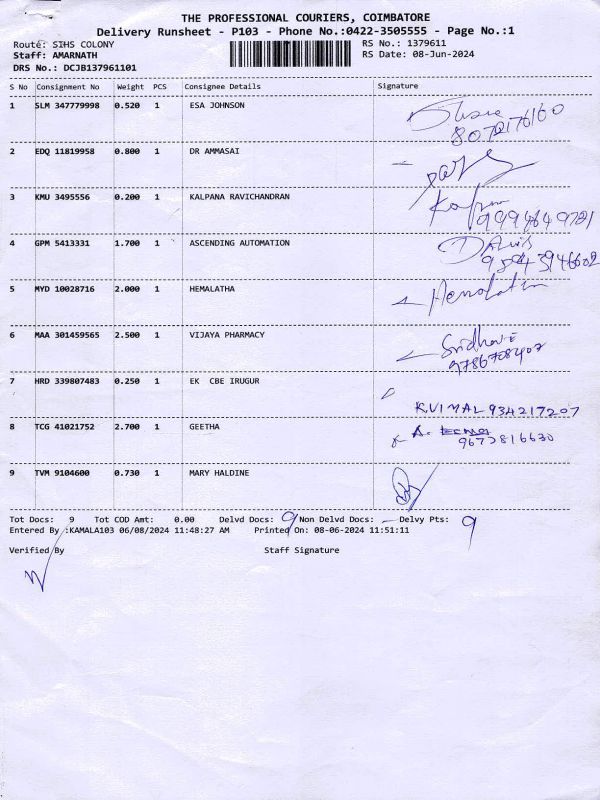 THE PROFESSIONAL COURIERS, COIMBATORE
Delivery Runsheet - P103 - Phone No.:0422-3505555 - Page No.:1
Route: SIHS COLONY RS No.: 1379611
Staff: AMARNATH RS Date: 08-Jun-2024
DRS No.: DCJB137961101
S No Consignment No Weight PCS Consignee Details Signature
1 SLM 347779998 0.520 1 ESA JOHNSON
8072176160
2 EDQ 11819958 0.800 1 DR AMMASAI
3 KMU 3495556 0.200 1 KALPANA RAVICHANDRAN
4 GPM 5413331 1.700 1 ASCENDING AUTOMATION
5 MYD 10028716 2.000 1 HEMALATHA Hemalatha
6 MAA 301459565 2.500 1 VIJAYA PHARMACY
9786708407
7 HRD 339807483 0.250 1 EK CBE IRUGUR
K.VIMAL 934217207
8 TCG 41021752 2.700 1 GEETHA A.
9 TVM 9104600 0.730 1 MARY HALDINE
Tot Docs: 9 Tot COD Amt: 0.00 Delvd Docs: 9 Non Delvd Docs: - Delvy Pts: 9
Entered By :KAMALA103 06/08/2024 11:48:27 AM Printed On: 08-06-2024 11:51:11
Verified By Staff Signature